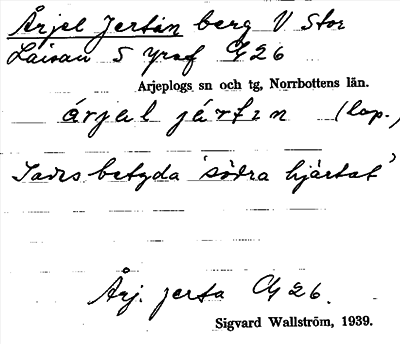 Årjel Jertan berg V Stor
Laisan S Yraf G26
Arjeplogs sn och tg, Norrbottens län.
árjal jártɪn (lap.)
Tads betyda 'södra hjärtat'
Årj. jerta G26.
Sigvard Wallström, 1939.